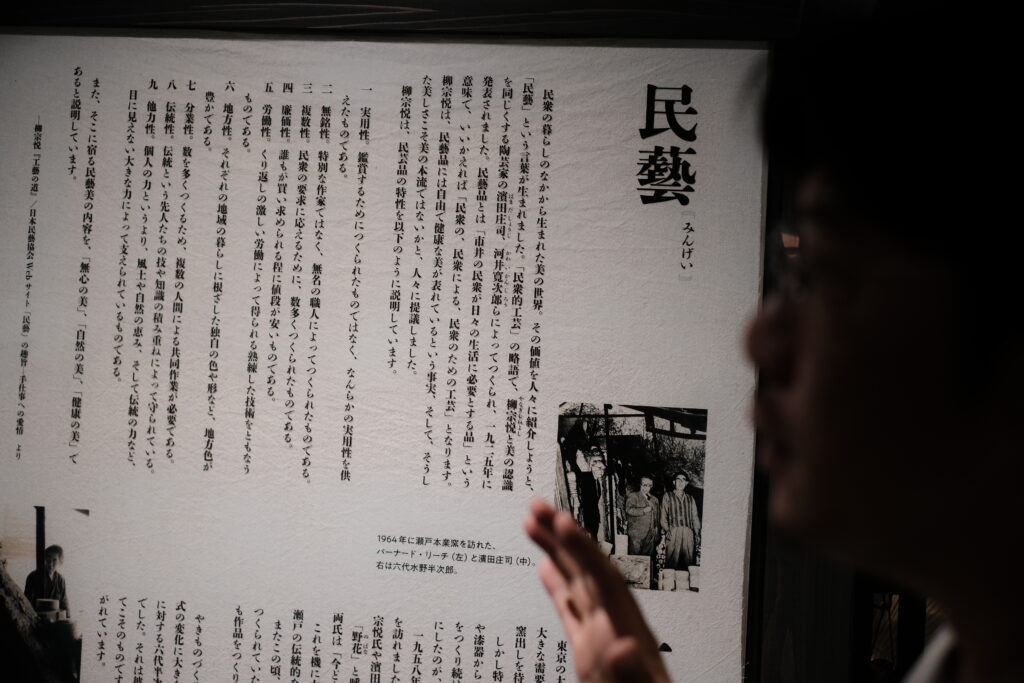 民藝
『みんげい』
民衆の暮らしのなかから生まれた美の世界。その価値を人々に紹介しようと、
「民藝」という言葉が生まれました。「民衆的工芸」の略語で、柳宗悦と美の認識
やなぎむねよし
を同じくする陶芸家の濱田庄司、河井寛次郎らによってつくられ、一九二五年に
はまだしょうじ
かわいかんじろう
発表されました。民藝品とは「市井の民衆が日々の生活に必要とする品」という
意味で、いいかえれば「民衆の、民衆による、民衆のための工芸」となります。
柳宗悦は、民藝品には自由で健康な美が表れているという事実、そして、そうし
た美しさこそ美の本流ではないかと、人々に提議しました。
柳宗悦は、民芸品の特性を以下のように説明しています。
一 実用性。鑑賞するためにつくられたものではなく、なんらかの実用性を供
えたものである。
二 無銘性。特別な作家ではなく、無名の職人によってつくられたものである。
三 複数性。民衆の要求に応えるために、数多くつくられたものである。
四 廉価性。誰もが買い求められる程に値段が安いものである。
五 労働性。くり返しの激しい労働によって得られる熟練した技術をともなう
ものである。
六 地方性。それぞれの地域の暮らしに根ざした独自の色や形など、地方色が
豊かである。
七 分業性。数を多くつくるため、複数の人間による共同作業が必要である。
八 伝統性。伝統という先人たちの技や知識の積み重ねによって守られている。
九 他力性。個人の力というより、風土や自然の恵み、そして伝統の力など、
目に見えない大きな力によって支えられているものである。
また、そこに宿る民藝美の内容を、「無心の美」、「自然の美」、「健康の美」で
あると説明しています。
―柳宗悦『工藝の道』／日本民藝協会Webサイト「民藝」の趣旨―手仕事への愛情 より
1964年に瀬戸本業窯を訪れた、
バーナード・リーチ（左）と濱田庄司（中）。
右は六代水野半次郎。
東京の
大きな需要
窯出しを待
しかし特
や漆器から
をつくり続
にしたのが、
一九五八年
を訪れました
宗悦氏や濱田
「野花」と
のばな
両氏は「今と
これを機に
瀬戸の伝統的な
またこの頃、
つくられていた
も作品をつくり
やきものづく
式の変化に大き
に対する六代半
でした。それは
てこそのものです
がれています。